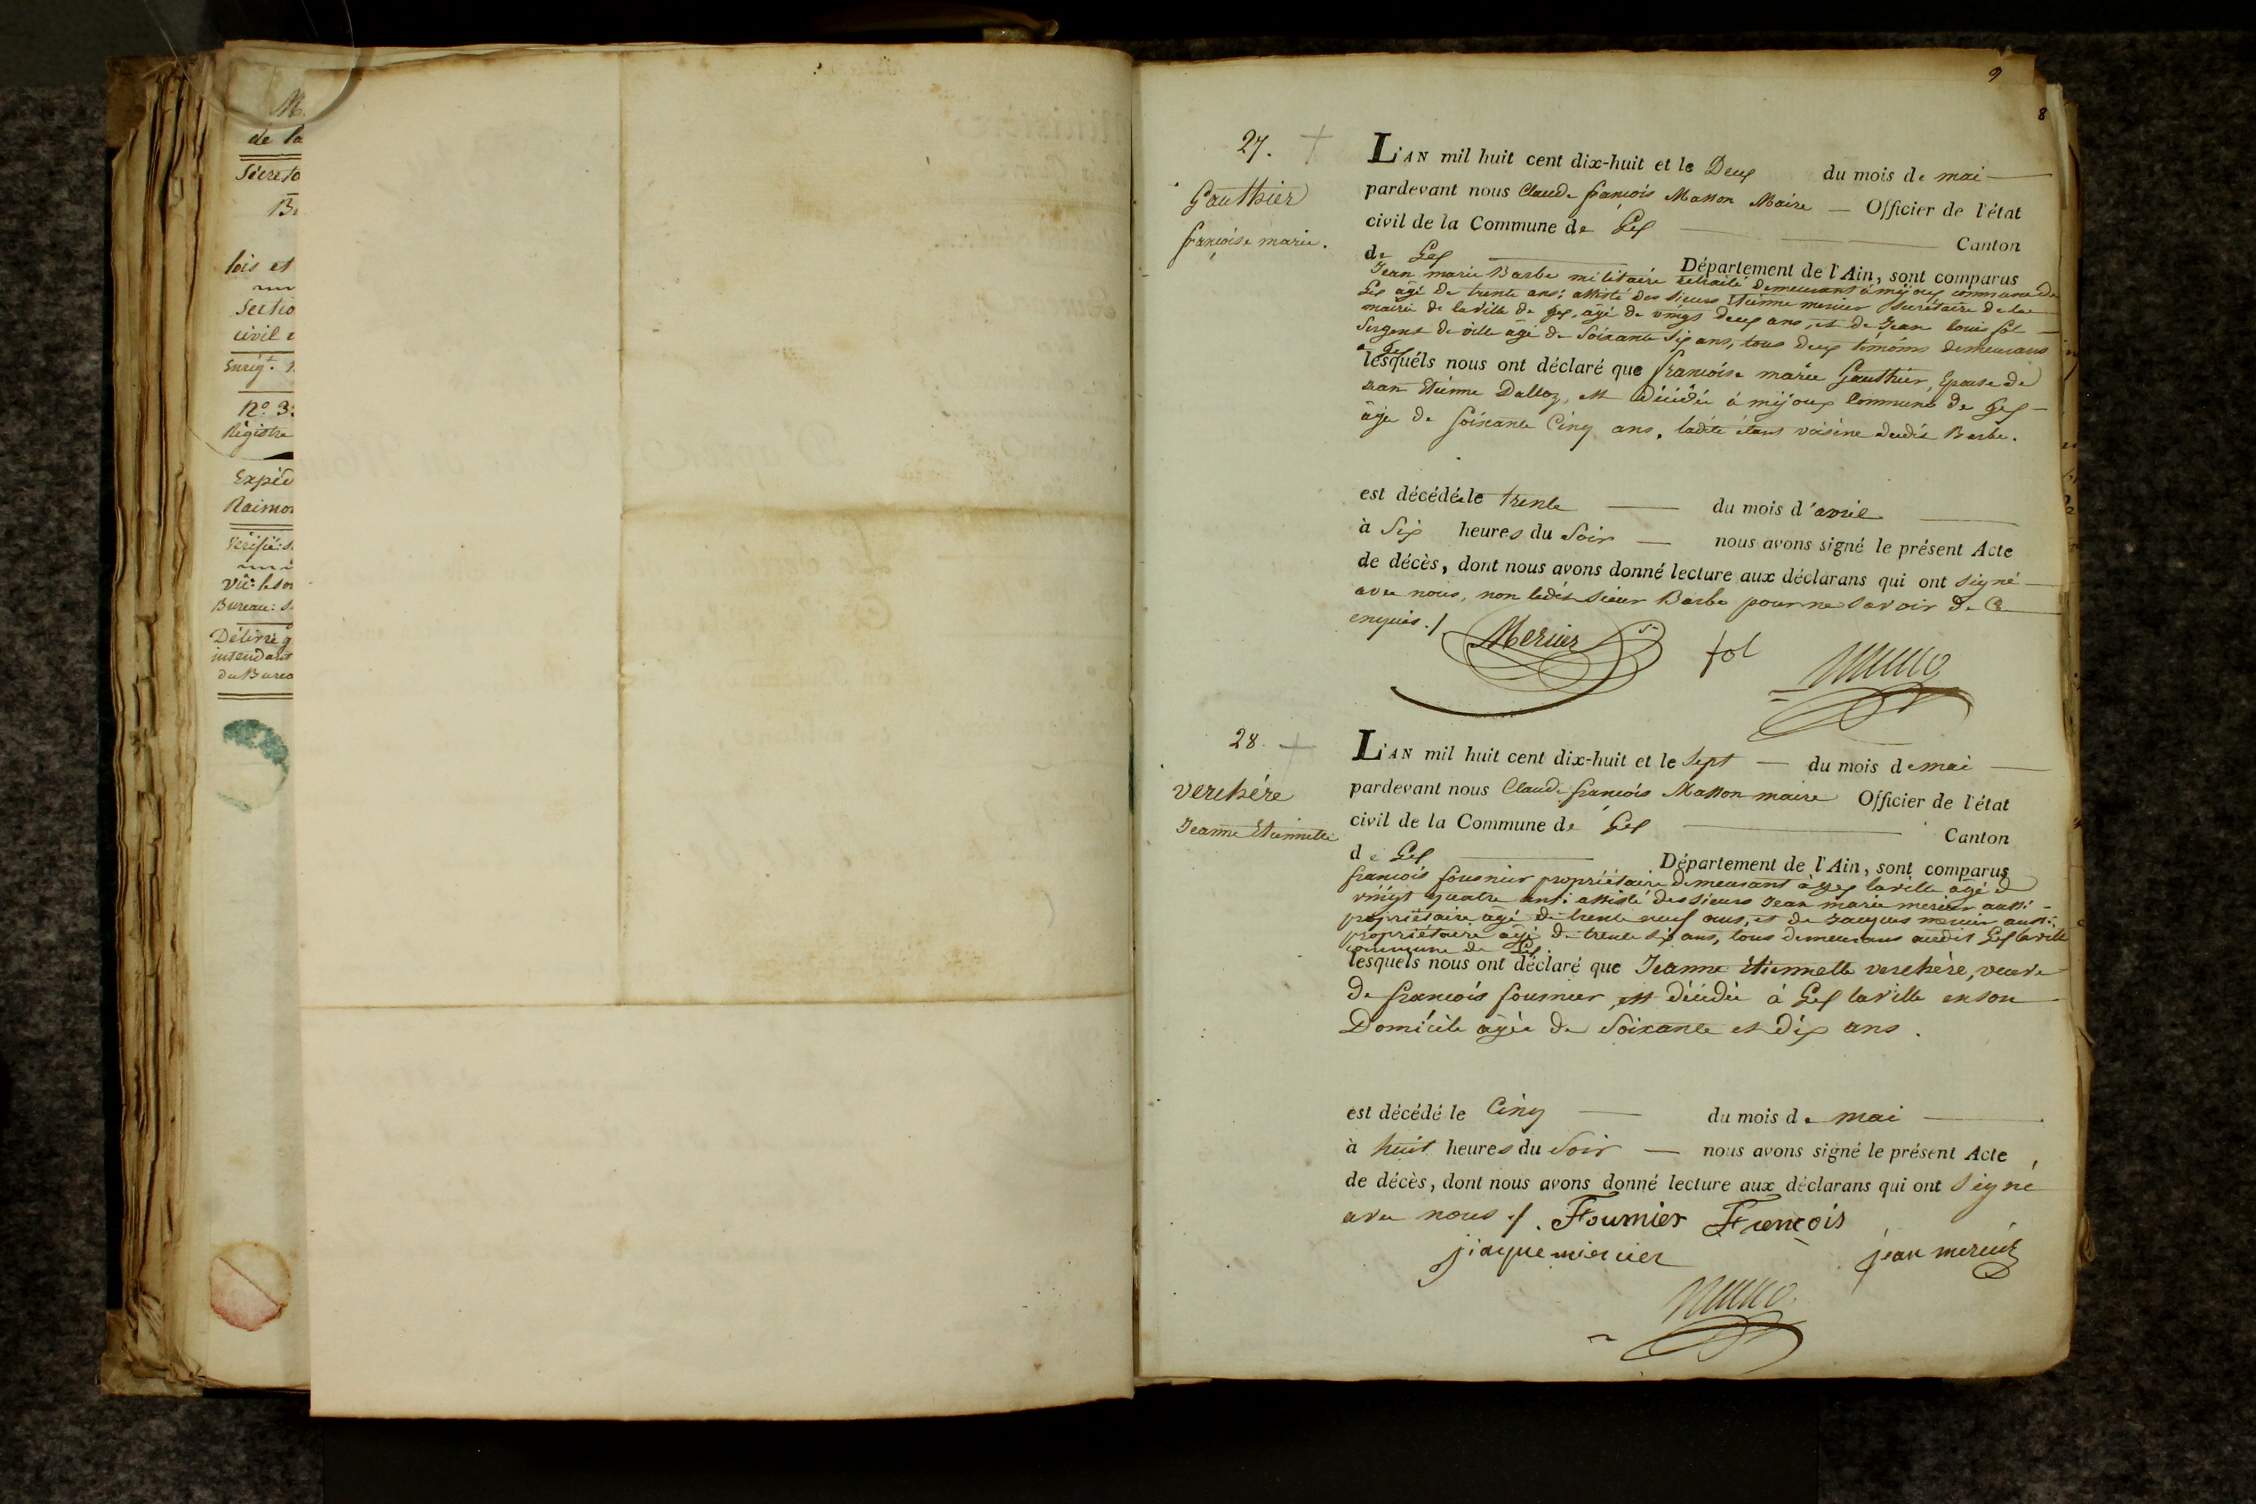 M.
de la
Secreta
lois et
Sectio
civil e
Enreg.t
N.o 3
Registre
Expéd
Raimon
Vérifié:
Bureau:
Délivré
intendant
du Burea
9
8
27.
Gauthier
françoise marie.
L'AN mil huit cent dix-huit et le Deux du mois de mai
pardevant nous Claude françois Masson Maire Officier de l'état
civil de la Commune de Gex Canton
de Gex Département de l'Ain, sont comparus
Jean marie Barbe militaire retraité demeurant à mijoux commune de
Gex âgé de trente ans; assisté des sieurs Etienne mercier secrétaire de la
mairie de la ville de Gex, âgé de vingt deux ans, et de Jean louis fol
Sergent de ville âgé de Soixante Six ans, tous deux témoins demeurans
à Gex
lesquels nous ont déclaré que françoise marie Gauthier, Epouse de
Jean Etienne Dalloz, est décédée à mijoux Commune de Gex
âgée de Soixante Cinq ans, ladite étant voisine dudit Barbe.
est décédée le trente du mois d'avril
à Six heures du Soir nous avons signé le présent Acte
de décès, dont nous avons donné lecture aux déclarans qui ont signé
avec nous, non ledit sieur Barbe pour ne savoir de Ce
enquis ./.
Mercier fol
28.
verchère
Jeanne Etiennette
L'AN mil huit cent dix-huit et le Sept du mois de mai
pardevant nous Claude françois Masson maire Officier de l'état
civil de la Commune de Gex Canton
de Gex Département de l'Ain, sont comparus
françois fournier propriétaire demeurant à Gex la ville âgé de
vingt quatre ans; assisté des sieurs Jean marie mercier aussi
propriétaire âgé de trente neuf ans, et de Jacques mercier aussi
propriétaire âgé de trente six ans, tous demeurans audit Gex la ville
commune de Gex.
lesquels nous ont déclaré que Jeanne Etiennette verchère, veuve
de françois fournier, est décédée à Gex la ville en son
Domicile âgée de Soixante et dix ans.
est décédé le Cinq du mois de mai
à huit heures du Soir nous avons signé le présent Acte
de décès, dont nous avons donné lecture aux déclarans qui ont Signé
avec nous ./. Fournier François
jiaque miercier jean mercier